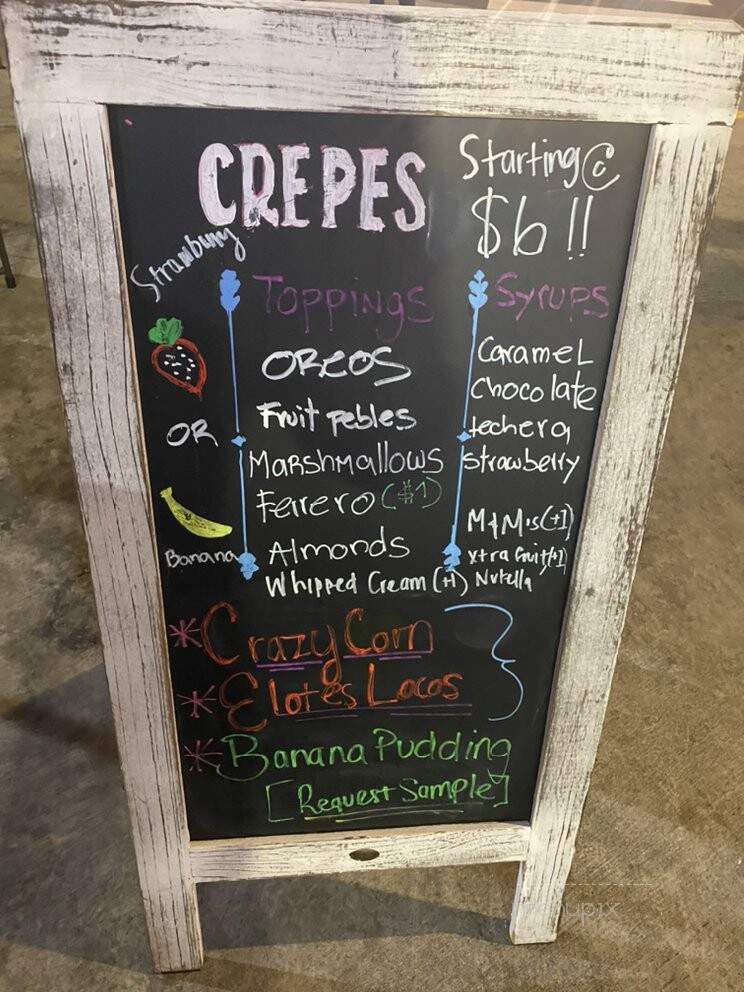 CREPES
Starting @
$6 !!
Strawberry
OR
Banana
Toppings
OREOS
Fruit pebles
MARSHMALLOWS
Ferrero ($1)
Almonds
Whipped Cream (+1)
Syrups
CarameL
Chocolate
lechera
strawberry
M&M's (+1)
xtra fruit (+1)
Nutella
*Crazy Corn
*Elotes Locos
*Banana Pudding
[Request Sample]